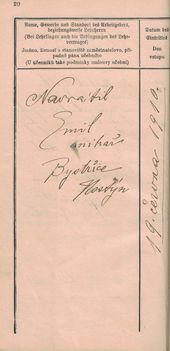 20
Name, Gewerbe und Standort des Arbeitgebers,
beziehungsweise Lehrherrn
(Bei Lehrlingen auch die Bedingungen des Lehr-
vertrages)
Jméno, živnosť a stanoviště zaměstnavatele, pří-
padně pána učebního
(U učenníků také podmínky smlouvy učební)
Datum des
Eintrittes
Den
vstupu
Navrátil
Emil
Bystřice
Hostýn
19. června 1910.